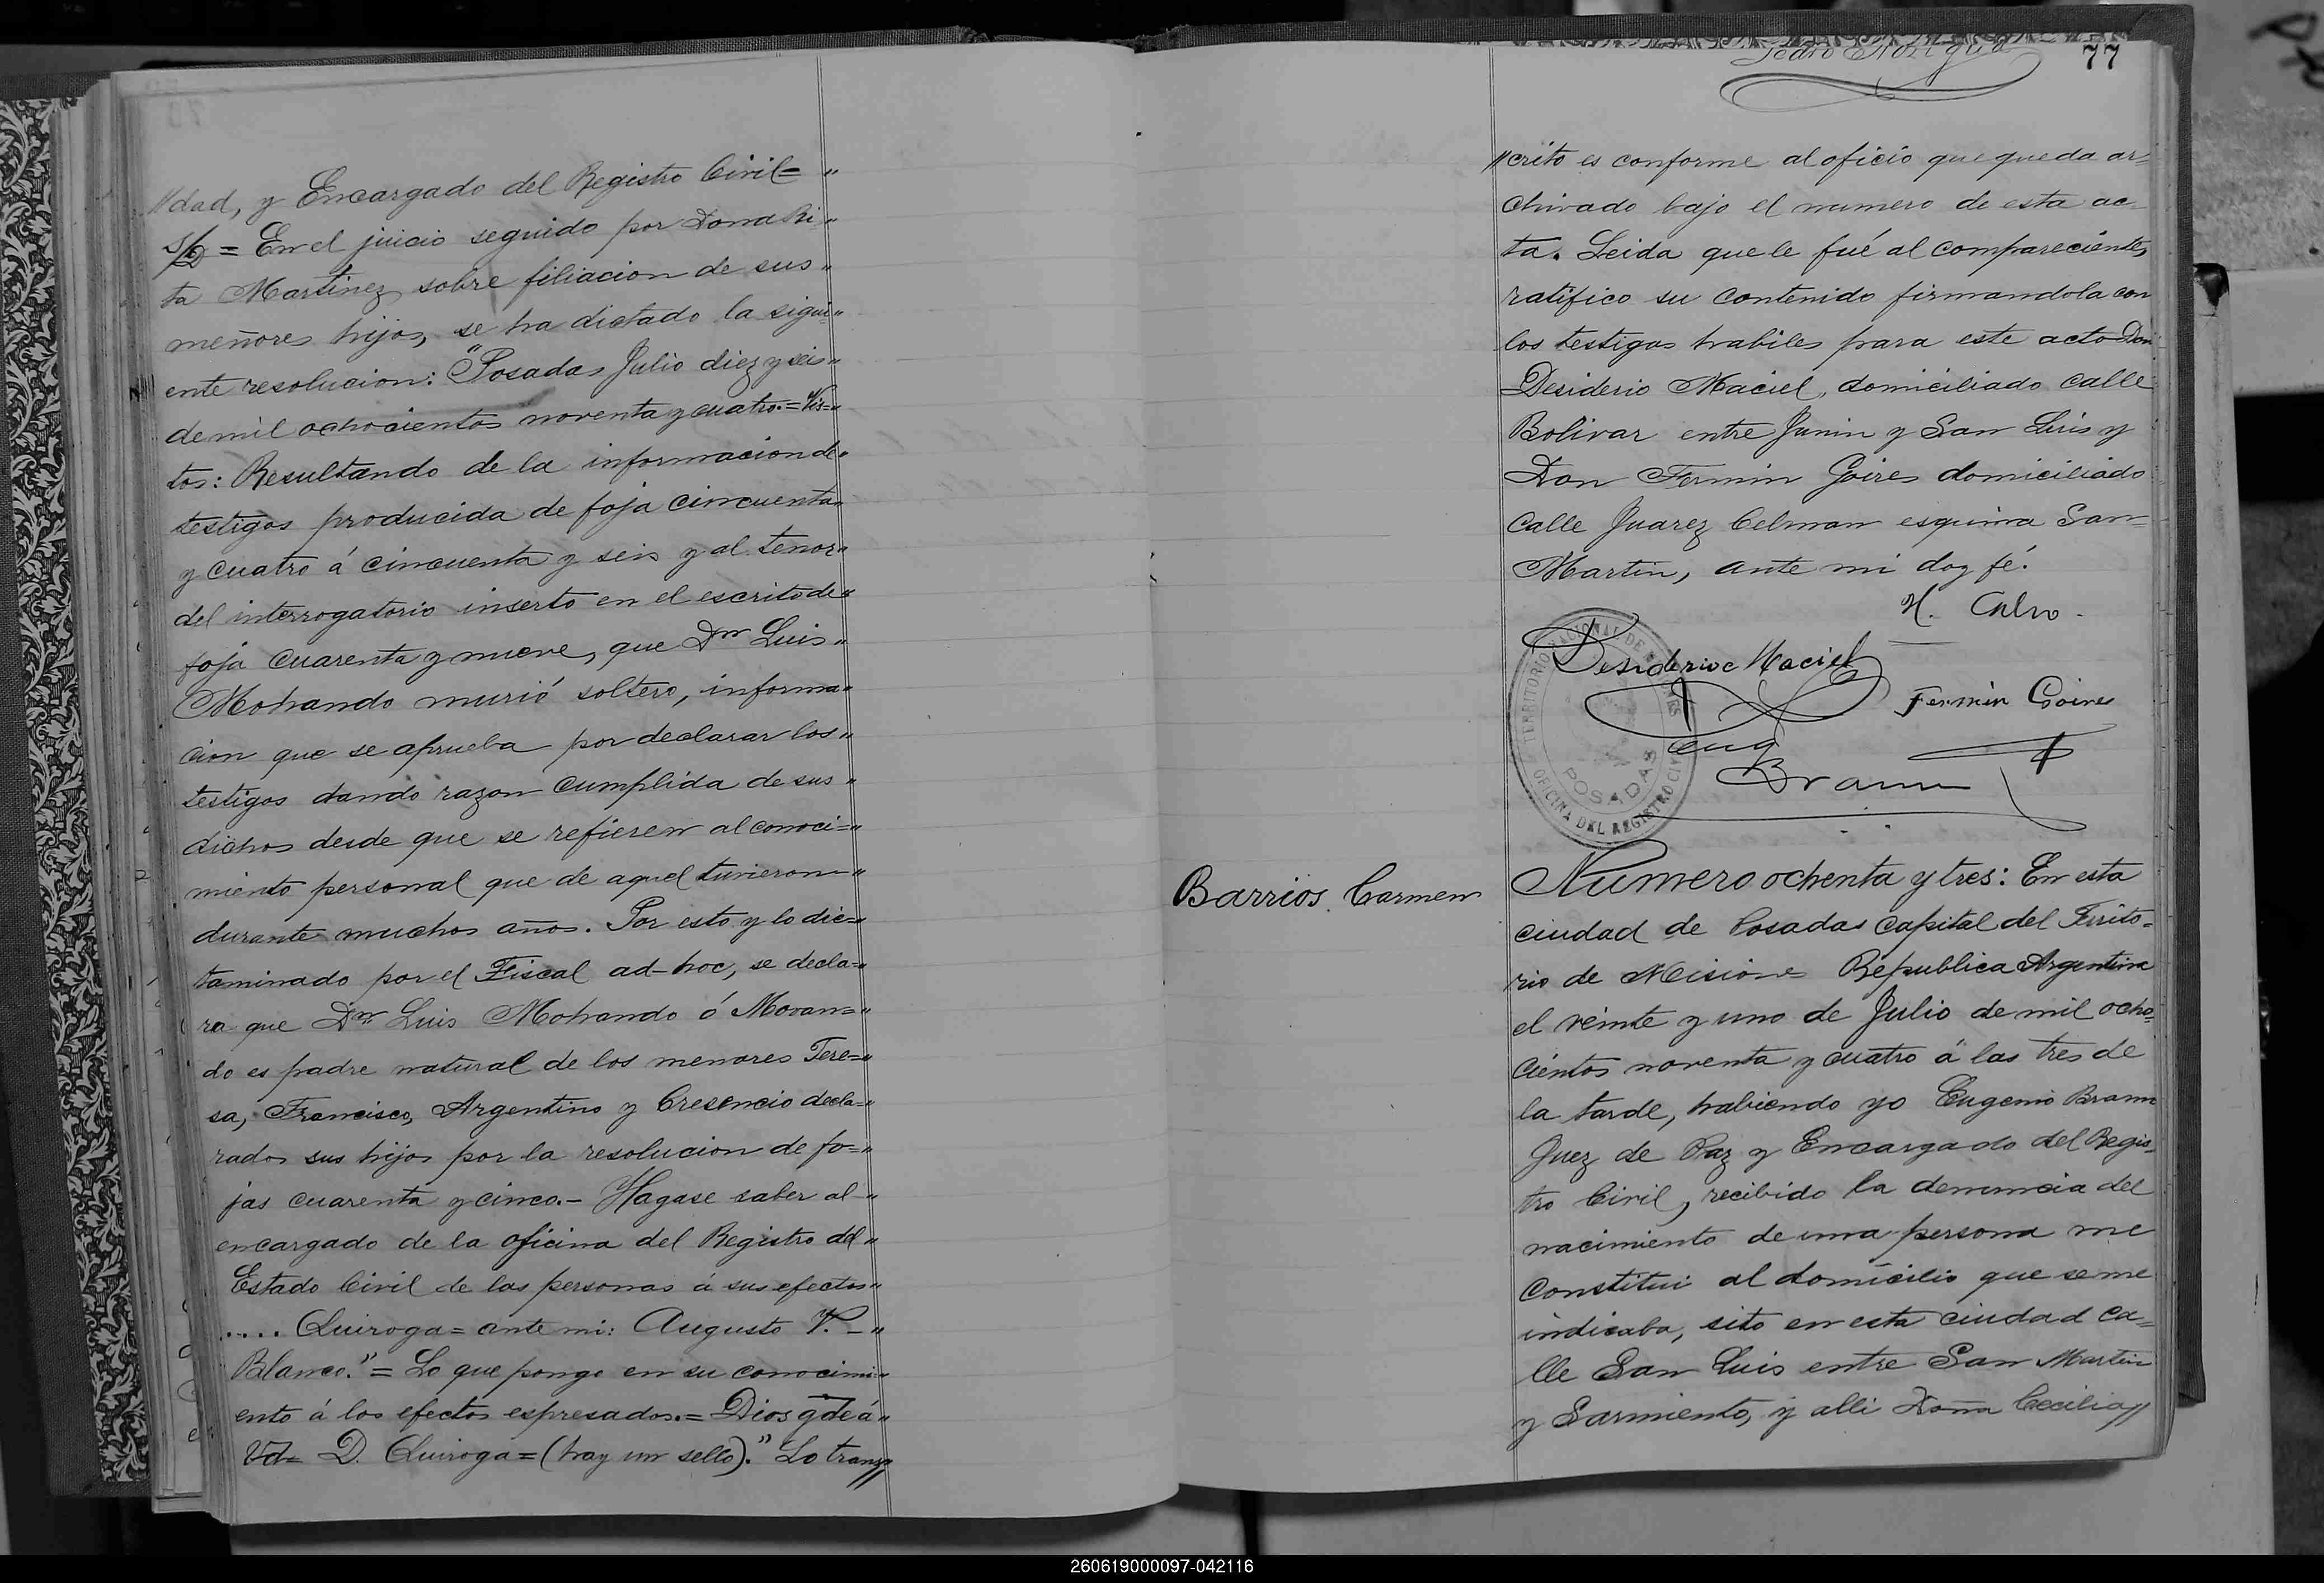 "dad, y Encargado del Registro Civil= "
S/D = En el juicio seguido por Dona Ri "
ta Martinez sobre filiacion de sus "
meñores hijos, se ha dictado la sigui "
ente resolucion: "Posadas Julio diez y seis "
de mil ochocientos noventa y cuatro.= Vis= "
tos: Resultando de la informacion de "
testigos producida de foja cincuenta "
y cuatro á cincuenta y seis y al tenor "
del interrogatorio inserto en el escrito de "
foja cuarenta y nueve, que Dn Luis "
Mohando murió soltero, informa "
cion que se aprueba por declarar los "
testigos dando razon cumplida de sus "
dichos desde que se refieren al conoci= "
miento personal que de aquel tuvieron "
durante muchos años. Por esto y lo dic= "
taminado por el Fiscal ad-hoc, se decla= "
ra que Dn Luis Mohando ó Moran= "
do es padre natural de los menores Tere= "
sa, Francisco, Argentino y Cresencio decla= "
rados sus hijos por la resolucion de fo= "
jas cuarenta y cinco.- Hagase saber al "
encargado de la oficina del Registro del "
Estado Civil de las personas á sus efectos "
.... Quiroga = ante mi: Augusto V. - "
Blanco." = Lo que pongo en su conocimi= "
ento á los efectos espresados.= Dios gde á "
Vd= D. Quiroga = (hay un sello)." Lo trans//
77
"crito es conforme al oficio que queda ar=
chivado bajo el numero de esta ac-
ta. Leida que le fué al compareciente,
ratifico su contenido firmandola con
los testigos habiles para este acto Don
Desiderio Maciel, domiciliado calle
Bolivar entre Junin y San Luis y
Don Fermin Goires domiciliado
Calle Juarez Celman esquina San=
Martin, ante mi doy fé.
H. Calvo.
Desiderio Maciel
Fermin Goires
Eug
Braun
TERRITORIO NACIONAL DE MISIONES
POSADAS
OFICINA DEL REGISTRO CIVIL
Barrios Carmen
Numero ochenta y tres: En esta
ciudad de Posadas Capital del Territo=
rio de Misiones Republica Argentina
el veinte y uno de Julio de mil ocho=
cientos noventa y cuatro á las tres de
la tarde, habiendo yo Eugenio Braun
Juez de Paz y Encargado del Regis=
tro Civil, recibido la denuncia del
nacimiento de una persona me
constitui al domicilio que se me
indicaba, sito en esta ciudad ca=
lle San Luis entre San Martin
y Sarmiento, y alli Doña Cecilia//
260619000097-042116